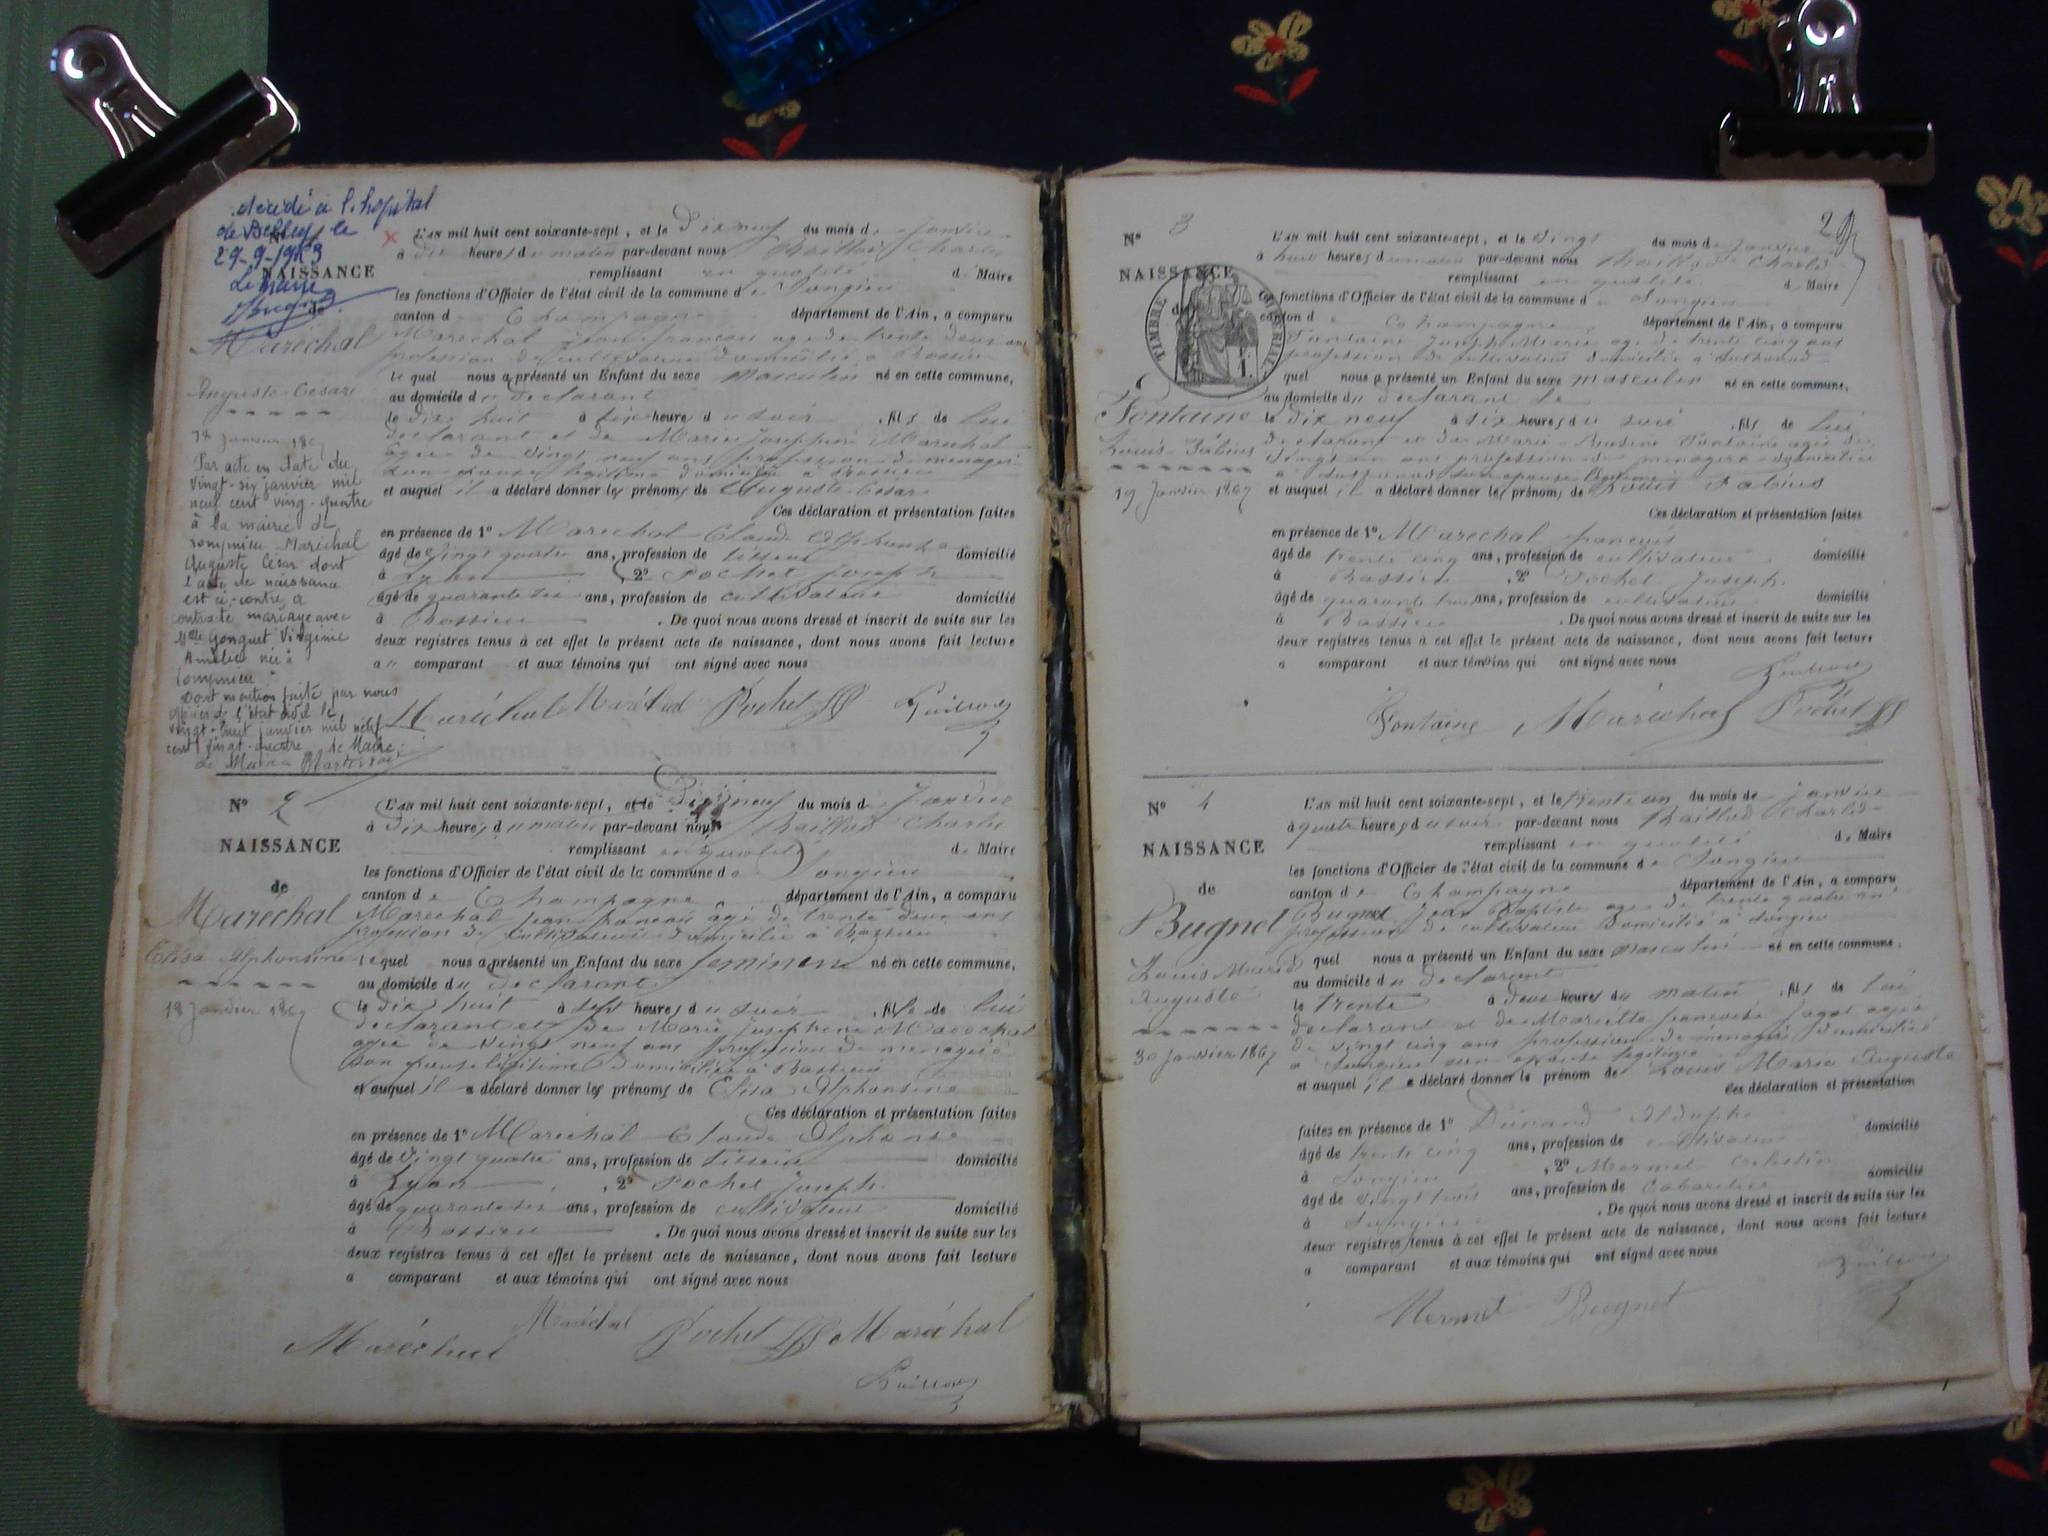 décédé à l'hôpital
de Belley le
29-9-19
Le Maire
NAISSANCE
de
Maréchal
Auguste-César
18 Janvier 1867
Par acte en date du
vingt-six janvier mil
neuf cent vingt-quatre
à la mairie de
Maréchal
Auguste César dont
l'acte de naissance
est ci-contre, a
contracté mariage avec
Mlle Gonguet Virginie
Amélie née à
dont mention faite par nous
officier de l'état civil le
vingt-huit janvier mil neuf
cent vingt-quatre le Maire
L'AN mil huit cent soixante-sept, et le Dix neuf du mois de Janvier
à dix heures du matin par-devant nous Charles
remplissant en qualité de Maire
les fonctions d'Officier de l'état civil de la commune de Songieu
canton de Champagne département de l'Ain, a comparu
Maréchal Jean francois agé de trente deux ans
profession de cultivateur domicilié à Bassieu
le quel nous a présenté un Enfant du sexe masculin né en cette commune,
au domicile du déclarant
le dix huit à six heures du soir, fils de lui
déclarant et de Marie Josephine Maréchal
agée de vingt neuf ans profession de menagère
son épouse légitime domiciliée à Bassieu
et auquel il a déclaré donner les prénoms de Auguste-César
Ces déclaration et présentation faites
en présence de 1º Maréchal Claude Alphonse
âgé de vingt quatre ans, profession de tisseur domicilié
à Lyon, 2º Pochet Joseph
âgé de quarante six ans, profession de cultivateur domicilié
à Bassieu. De quoi nous avons dressé et inscrit de suite sur les
deux registres tenus à cet effet le présent acte de naissance, dont nous avons fait lecture
au comparant et aux témoins qui ont signé avec nous
Maréchal Maréchal Pochet
Nº 2
NAISSANCE
de
Maréchal
Elisa Alphonsine
18 Janvier 1867
L'AN mil huit cent soixante-sept, et le Dix neuf du mois de Janvier
à Dix heures du matin par-devant nous Charles
remplissant en qualité de Maire
les fonctions d'Officier de l'état civil de la commune de Songieu
canton de Champagne département de l'Ain, a comparu
Maréchal Jean francois âgé de trente deux ans
profession de cultivateur domicilié à Bassieu
lequel nous a présenté un Enfant du sexe féminin né en cette commune,
au domicile du déclarant
le dix huit à sept heures du soir, fille de lui
déclarant et de Marie Josephine Maréchal
agée de vingt neuf ans profession de menagère
son épouse légitime domiciliée à Bassieu
et auquel il a déclaré donner les prénoms de Elisa Alphonsine
Ces déclaration et présentation faites
en présence de 1º Maréchal Claude Alphonse
âgé de vingt quatre ans, profession de tisseur domicilié
à Lyon, 2º Pochet Joseph
âgé de quarante six ans, profession de cultivateur domicilié
à Bassieu. De quoi nous avons dressé et inscrit de suite sur les
deux registres tenus à cet effet le présent acte de naissance, dont nous avons fait lecture
a comparant et aux témoins qui ont signé avec nous
Maréchal Maréchal Pochet Maréchal
2
Nº 3
NAISSANCE
de
TIMBRE IMPERIAL
Fontaine
Louis-Fabius
19 Janvier 1867
L'AN mil huit cent soixante-sept, et le vingt du mois de Janvier
à huit heures du matin par-devant nous Charles
remplissant en qualité de Maire
les fonctions d'Officier de l'état civil de la commune de Songieu
canton de Champagne département de l'Ain, a comparu
Fontaine Joseph Marie agé de trente cinq ans
profession de cultivateur domicilié à
quel nous a présenté un Enfant du sexe masculin né en cette commune,
au domicile du déclarant le
le dix neuf à six heures du soir, fils de lui
déclarant et de Marie Fontaine agée de
vingt un ans profession de menagère domiciliée
à son épouse légitime
et auquel il a déclaré donner les prénoms de Louis Fabius
Ces déclaration et présentation faites
en présence de 1º Maréchal francois
âgé de trente cinq ans, profession de cultivateur domicilié
à Bassieu, 2º Pochet Joseph
âgé de quarante ans, profession de cultivateur domicilié
à Bassieu. De quoi nous avons dressé et inscrit de suite sur les
deux registres tenus à cet effet le présent acte de naissance, dont nous avons fait lecture
a comparant et aux témoins qui ont signé avec nous
Fontaine Maréchal Pochet
Nº 4
NAISSANCE
de
Bugnet
Louis Marie
Auguste
30 Janvier 1867
L'AN mil huit cent soixante-sept, et le trente un du mois de janvier
à quatre heures du soir par-devant nous Charles
remplissant en qualité de Maire
les fonctions d'Officier de l'état civil de la commune de Songieu
canton de Champagne département de l'Ain, a comparu
Bugnet Jean Baptiste agé de trente quatre ans
profession de cultivateur domicilié à Songieu
quel nous a présenté un Enfant du sexe masculin né en cette commune,
au domicile du déclarant
le trente à deux heures du matin, fils de lui
déclarant et de Mariette françoise agée
de vingt cinq ans profession de ménagère domiciliée
à Songieu son épouse légitime
et auquel il a déclaré donner le prénom de Louis Marie Auguste
Ces déclaration et présentation
faites en présence de 1º Durand
âgé de trente cinq ans, profession de cultivateur domicilié
à Songieu, 2º Mermet Celestin
âgé de vingt trois ans, profession de Cabaretier domicilié
à Songieu. De quoi nous avons dressé et inscrit de suite sur les
deux registres tenus à cet effet le présent acte de naissance, dont nous avons fait lecture
a comparant et aux témoins qui ont signé avec nous
Mermet Bugnet